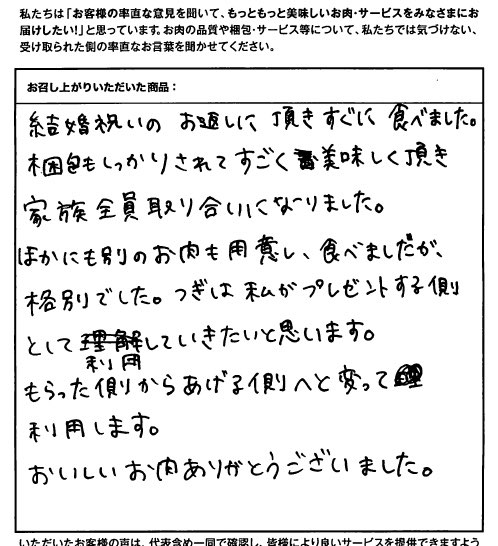 私たちは「お客様の率直な意見を聞いて、もっともっと美味しいお肉・サービスをみなさまにお
届けしたい!」と思っています。お肉の品質や梱包・サービス等について、私たちでは気づけない、
受け取られた側の率直なお言葉を聞かせてください。
お召し上がりいただいた商品：
結婚祝いの お返しに 頂きすぐに 食べました。
梱包もしっかりされてすごく美味しく頂き
家族全員取り合いになりました。
ほかにも別のお肉も用意し、食べましだが、
格別でした。つぎは 私がプレゼントする側
として理解していきたいと思います。
利用
もらった側からあげる側へと変って
利用します。
おいしいお肉ありがとうございました。
いただいたお客様の声は、代表含め一同で確認し、皆様により良いサービスを提供できますよう